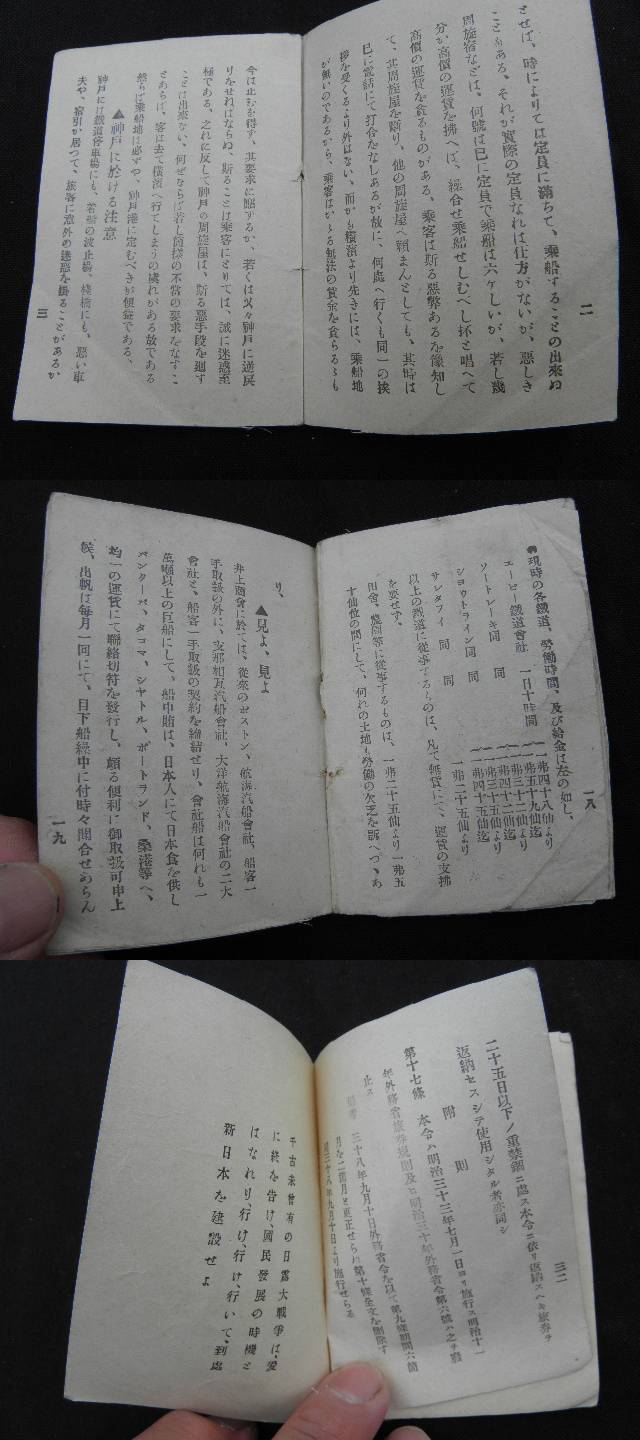 とせば、時によりては定員に滿ちて、乘船することの出來ぬ
こともある、それが實際の定員なれば仕方がないが、惡しき
周旋宿などは、何號は已に定員で乘船は六ケしいが、若し幾
分か高價の運賃を拂へば、繰合せ乘船せしむべし抔と唱へて
高價の運賃を貪るものがある、乘客は斯る惡弊あるを像知し
て、其周旋屋を斷り、他の周旋屋へ賴まんとしても、其時は
已に電話にて打合をなしあるが故に、何處へ行くも同一の挨
拶を受くるより外はない、而かも橫濱より先きには、乘船地
が無いのであるから、乘客はかゝる無法の賃金を貪らるゝも
二
今は止むを得ず、其要求に應ずるか、若くは又々神戶に逆戾
りをせねばならぬ、斯ることは乘客にとりては、誠に迷惑至
極である、之れに反して神戶の周旋屋は、斯る惡手段を廻す
ことは出來ない、何ぜならば若し箇樣の不當の要求をなすこ
とあらば、客は去て橫濱へ行てしまうの虞れがある故である
然らば乘船地は必ずや、神戶港に定むべきが便益である、
▲神戶に於ける注意
神戶には鐵道停車場にも、着船の波止場、棧橋にも、惡い車
夫や、宿引が居つて、旅客に意外の迷惑を掛ることがあるか
三
●現時の各鐵道、勞働時間、及び給金は左の如し、
エーピー鐵道會社 一日十時間 一弗四十八仙より
一弗五十九仙迄
ソートレーキ同 同 一弗三十二仙より
一弗四十二仙迄
ショウトライン同 同 一弗三十五仙より
一弗四十五仙迄
サンタフイ 同 同 一弗二十五仙より
以上の鐵道に從事するものは、凡て無賃にて、運賃の支拂
を要せず、
田舍、農園等に從事するものは、一弗二十五仙より一弗五
十仙位の間にして、何れの土地も勞働の欠乏を訴へつゝあ
一八
り、
▲見よ、見よ
井上商會に於ては、從來のボストン、航海汽船會社、船客一
手取扱の外に、支那相互汽船會社、大洋航海汽船會社の二大
會社と、船客一手取扱の契約を締結せり、會社船は何れも一
萬噸以上の巨船にして、船中賄は、日本人にて日本食を供し
バンクーバ、タコマ、シヤトル、ポートランド、桑港等へ、
均一の運賃にて聯絡切符を發行し、頗る便利に御取扱可申上
候、出帆は每月一回にて、目下船繰中に付時々聞合せあらん
一九
二十五日以下ノ重禁錮ニ處ス本令ニ依リ返納スヘキ旅券ヲ
返納セスシテ使用シタル者亦同シ
附 則
第十七條 本令ハ明治三十三年七月一日ヨリ施行ス明治十一
年外務省旅券規則及ヒ明治三十年外務省令第六號ハ之ヲ廢
止ス
三十八年九月十日外務省令を以て第九條期間六箇
月を二箇月と更正せられ第十條全文を削除す
三十八年九月十日より施行せらる
三二
千古未曾有の日露大戰爭は、愛
に終を告げ、國民發展の時機と
はなれり、行け、行け、行いて、到處
新日本を建設せよ